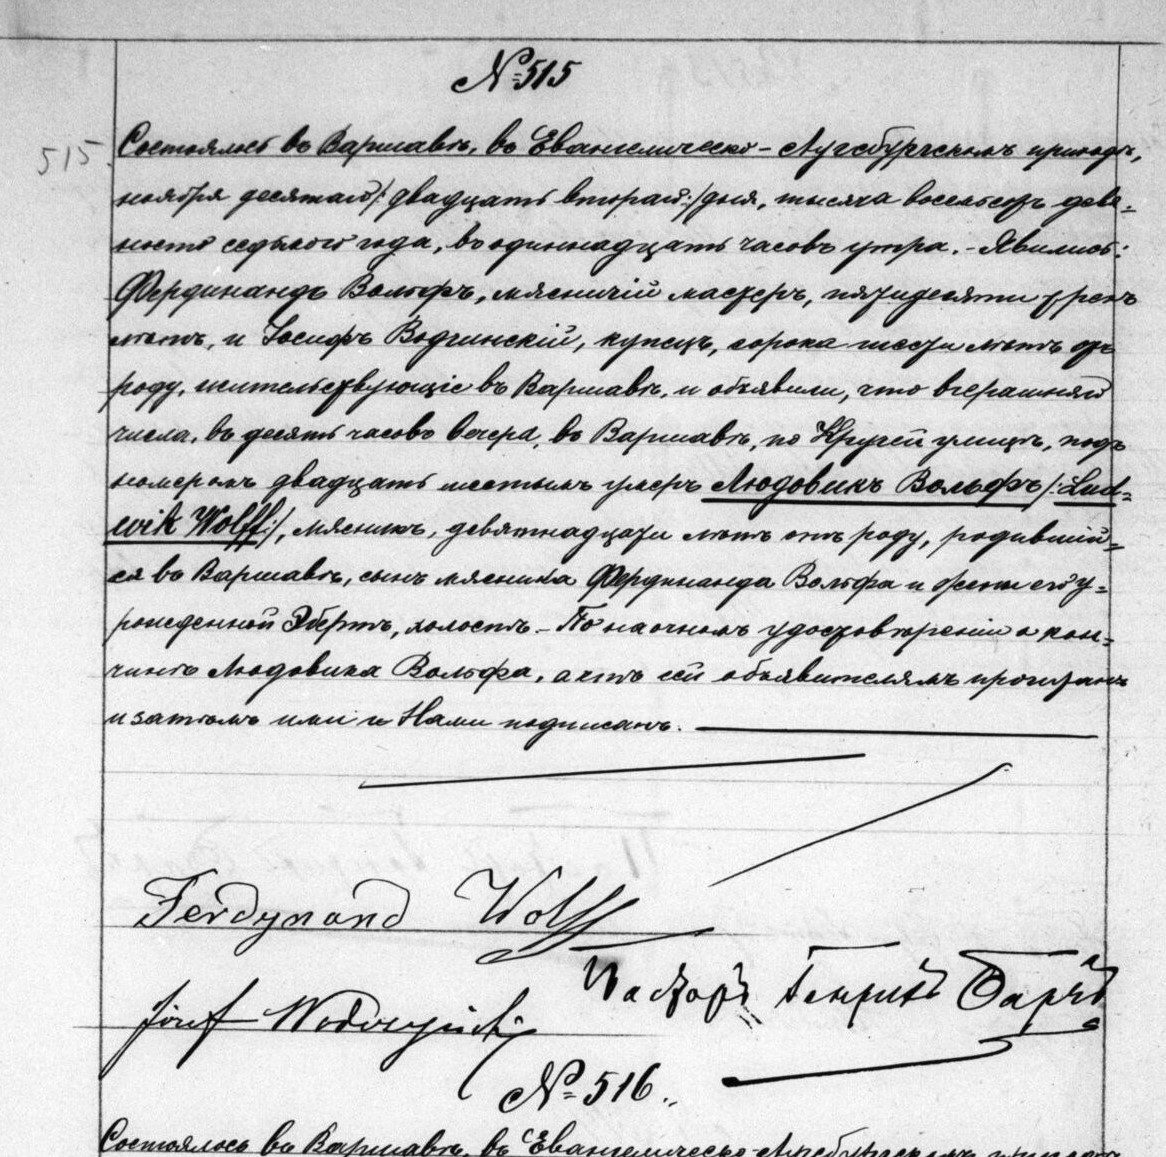 № 515
515.
Состоялось въ Варшавѣ, въ Евангелическо-Аугсбургскомъ приходѣ,
ноября десятаго /: двадцать втораго :/ дня, тысяча восемьсотъ девя-
носто седьмого года, въ одиннадцать часовъ утра. - Явились:
Фердинандъ Вольфъ, мясничій мастеръ, пятидесяти трехъ
лѣтъ, и Іосифъ Водчинскій, купецъ, сорока шести лѣтъ отъ
роду, жительствующіе въ Варшавѣ, и объявили, что вчерашняго
числа, въ десять часовъ вечера, въ Варшавѣ, по Кручей улицѣ, подъ
номеромъ двадцать шестымъ умеръ Людовикъ Вольфъ /: Lud-
wik Wolff :/, мясникъ, девятнадцати лѣтъ отъ роду, родившій-
ся въ Варшавѣ, сынъ мясника Фердинанда Вольфа и жены его у-
рожденной Эбертъ, холостъ. - По наочномъ удостовѣреніи о кон-
чинѣ Людовика Вольфа, актъ сей объявителямъ прочитанъ
и затѣмъ ими и Нами подписанъ.
Ferdynand Wolff
Пасторъ Генрихъ
Józef
№ 516.
Состоялось въ Варшавѣ, въ Евангелическо-Аугсбургскомъ приходѣ